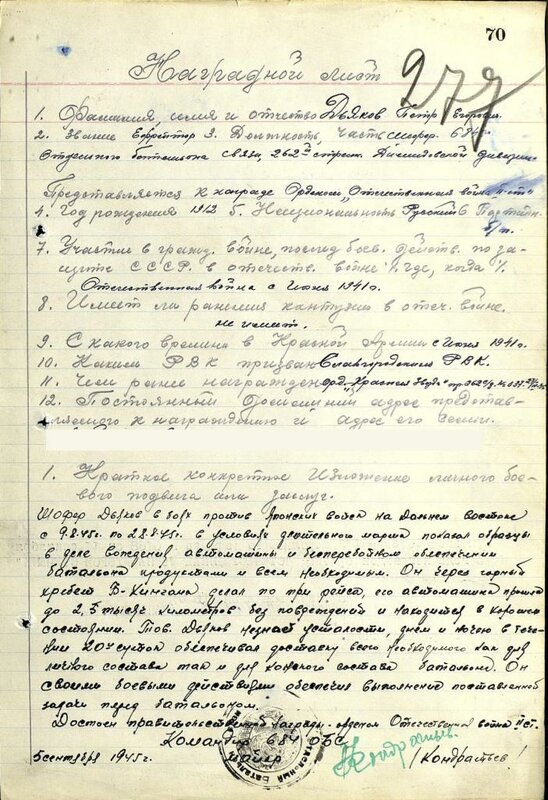 70
277
Наградной лист
1. Фамилия, имя и отчество Дьяков Петр Егорович
2. Звание Ефрейтор 3. Должность, часть шофер 684
отдельного батальона связи, 262й стрел. Демидовской дивизии
Представляется к награде Орденом "Отечественная война II ст."
4. Год рождения 1912 5. Национальность Русский 6. Партийн.
б/п.
7. Участие в гражд. войне, послед. боев. действ. по за-
щите СССР. в отечеств. войне /. где, когда /.
Отечественная война с Июня 1941 г.
8. Имеет ли ранения контузии в отеч. войне.
не имеет.
9. С какого времени в Красной Армии с Июня 1941 г.
10. Каким РВК призван Славгородским РВК.
11. Чем ранее награжден орд. "Красная Звезда"
12. Постоянный домашний адрес представ-
ляемого к награждению и адрес его семьи.
1. Краткое конкретное изложение личного бое-
вого подвига или заслуг.
Шофер Дьяков в боях против Японских войск на Дальнем востоке
с 9.8.45г. по 22.8.45г. в условиях длительного марша показал образцы
в деле вождения автомашины и бесперебойном обеспечении
батальона продуктами и всем необходимым. Он через горный
хребет Б-Хинган делал по три рейса, его автомашина прошла
до 2,5 тысяч километров без повреждений и находится в хорошем
состоянии. Тов. Дьяков не знает усталости, днем и ночью в тече-
нии 20и суток обеспечивал доставку всего необходимого как для
личного состава так и для конского состава батальона. Он
своими боевыми действиями обеспечил выполнение поставленной
задачи перед батальоном.
Достоен правительственной награды - орденом Отечественная война II ст.
Командир 684 ОБС
майор Кондратьев / Кондратьев /
5 сентября 1945г.